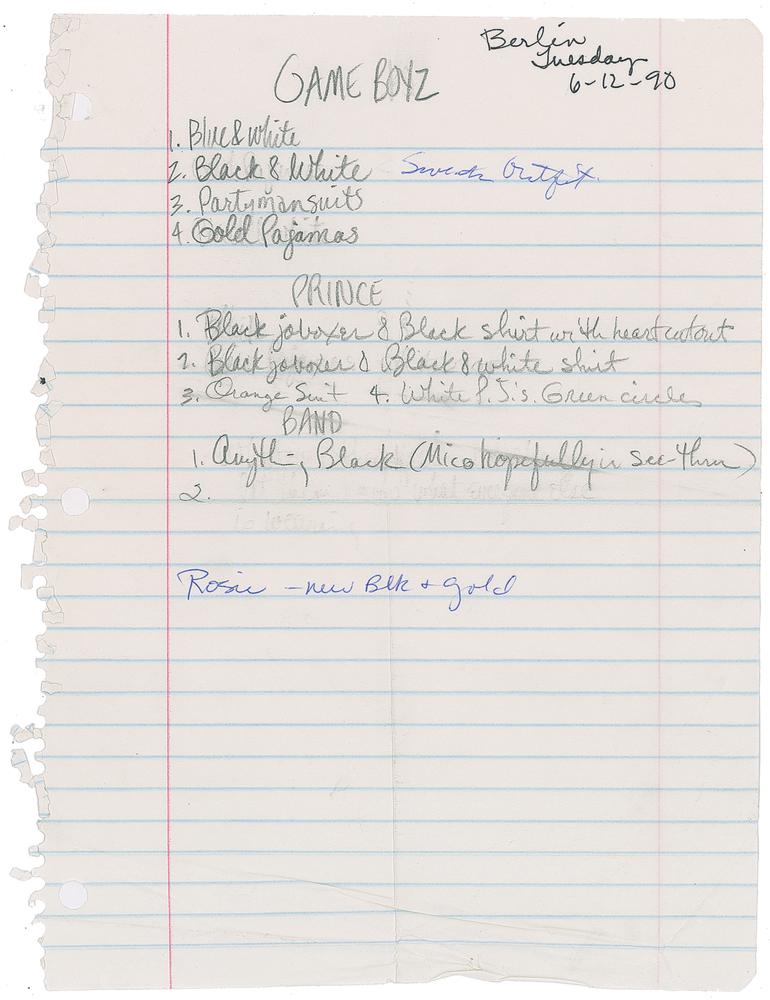 Berlin
Tuesday
6-12-90
GAME BOYZ
1. Blue & White
2. Black & White Sweats Outfit.
3. Partymansuits
4. Gold Pajamas
PRINCE
1. Black joboxer & Black shirt with heart cutout
2. Black joboxer & Black & white shirt
3. Orange Suit 4. White P.J.'s. Green circles
BAND
1. Anything Black (Mico hopefully in see-thru)
2.
Rosie - new Blk + gold